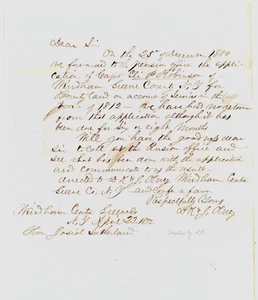 Dear Sir
On the 25th December 1850
we forwarded to the pension office the appli
cation of Capt Robinson of
Windham Greene County N.Y for
Bounty land on account of services in the
War of 1812 – We have had no return
from that application although it has
been due for six or eight Months
Will you have the goodness dear
Sir to call at the Pension office and
see what has been done with the application
and communicate us the result
directed to Windham Centre
Greene Co. N.Y and confer a favor
Respectfully Yours
Windham Centre Greene Co
N.Y April
Hon Josiah Sutherland